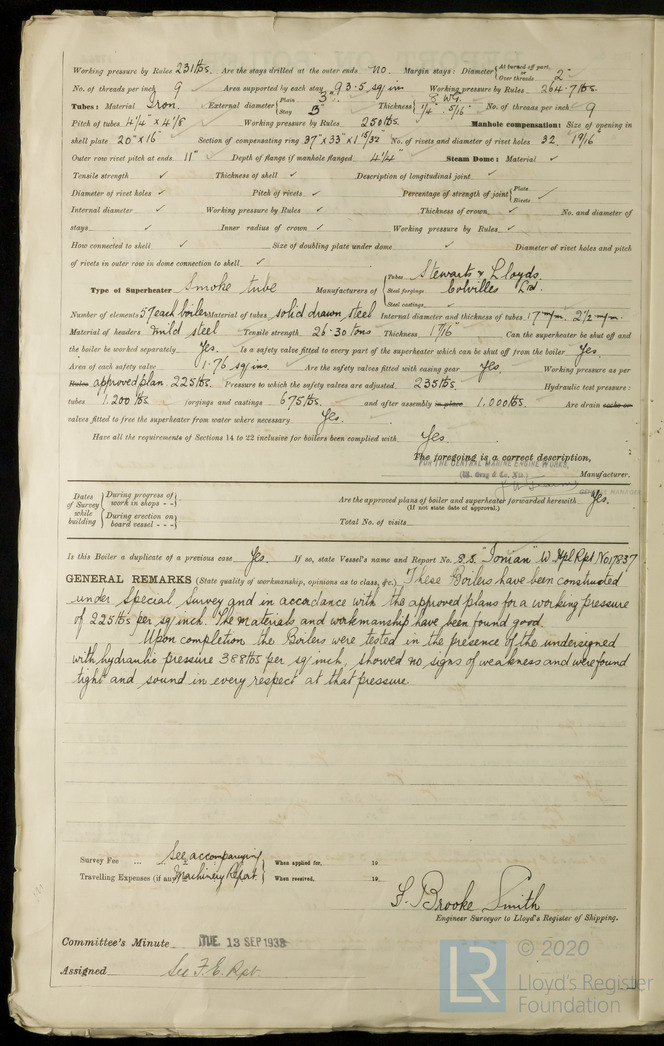 Working pressure by Rules 231 lbs. Are the stays drilled at the outer ends No. Margin stays: Diameter { At turned off part, or Over threads 2"
No. of threads per inch 9 Area supported by each stay 93.5 sq in Working pressure by Rules 264.7 lbs.
Tubes: Material Iron. External diameter { Plain 3" Stay 3" Thickness { 8 WG. 1/4" 5/16" No. of threads per inch 9
Pitch of tubes 4 1/4" x 4 1/8 Working pressure by Rules 250 lbs. Manhole compensation: Size of opening in
shell plate 20" x 16" Section of compensating ring 37" x 33" x 1 15/32" No. of rivets and diameter of rivet holes 32. 1 9/16"
Outer row rivet pitch at ends 11" Depth of flange if manhole flanged 4 1/4" Steam Dome: Material ✓
Tensile strength ✓ Thickness of shell ✓ Description of longitudinal joint ✓
Diameter of rivet holes ✓ Pitch of rivets ✓ Percentage of strength of joint { Plate Rivets ✓
Internal diameter ✓ Working pressure by Rules ✓ Thickness of crown ✓ No. and diameter of
stays ✓ Inner radius of crown ✓ Working pressure by Rules ✓
How connected to shell ✓ Size of doubling plate under dome ✓ Diameter of rivet holes and pitch
of rivets in outer row in dome connection to shell ✓
Type of Superheater Smoke tube Manufacturers of { Tubes Stewarts & Lloyds. Steel forgings Colvilles Ltd. Steel castings ✓
Number of elements 57 each boiler Material of tubes solid drawn steel Internal diameter and thickness of tubes 17 m/m. 2 1/2 m/m.
Material of headers mild steel Tensile strength 26-30 tons Thickness 1 7/16" Can the superheater be shut off and
the boiler be worked separately Yes. Is a safety valve fitted to every part of the superheater which can be shut off from the boiler Yes.
Area of each safety valve 1.76 sq/ins. Are the safety valves fitted with easing gear Yes. Working pressure as per
Rules approved plan. 225 lbs. Pressure to which the safety valves are adjusted 235 lbs. Hydraulic test pressure:
tubes 1.200 lbs. forgings and castings 675 lbs. and after assembly in place 1.000 lbs. Are drain cocks or
valves fitted to free the superheater from water where necessary Yes.
Have all the requirements of Sections 14 to 22 inclusive for boilers been complied with Yes.
The foregoing is a correct description,
FOR THE CENTRAL MARINE ENGINE WORKS,
(Wm. Gray & Co. Ltd.) Manufacturer.
GENERAL MANAGER
Dates of Survey while building { During progress of work in shops - - } Are the approved plans of boiler and superheater forwarded herewith Yes.
(If not state date of approval.)
{ During erection on board vessel - - - } Total No. of visits
Is this Boiler a duplicate of a previous case Yes. If so, state Vessel's name and Report No. S.S. "Ionian" W. Hpl Rpt No 17837
GENERAL REMARKS (State quality of workmanship, opinions as to class, &c.) These Boilers have been constructed
under Special Survey and in accordance with the approved plans for a working pressure
of 225 lbs per sq/inch. The materials and workmanship have been found good.
Upon completion the Boilers were tested in the presence of the undersigned
with hydraulic pressure 388 lbs per sq/inch, showed no signs of weakness and were found
tight and sound in every respect at that pressure.
Survey Fee ... See accompanying When applied for, 19
Travelling Expenses (if any) Machinery Report. When received, 19
F. Brooke Smith
Engineer Surveyor to Lloyd's Register of Shipping.
Committee's Minute TUE. 13 SEP 1938
Assigned See F.E. Rpt.
LR © 2020
Lloyd's Register
Foundation